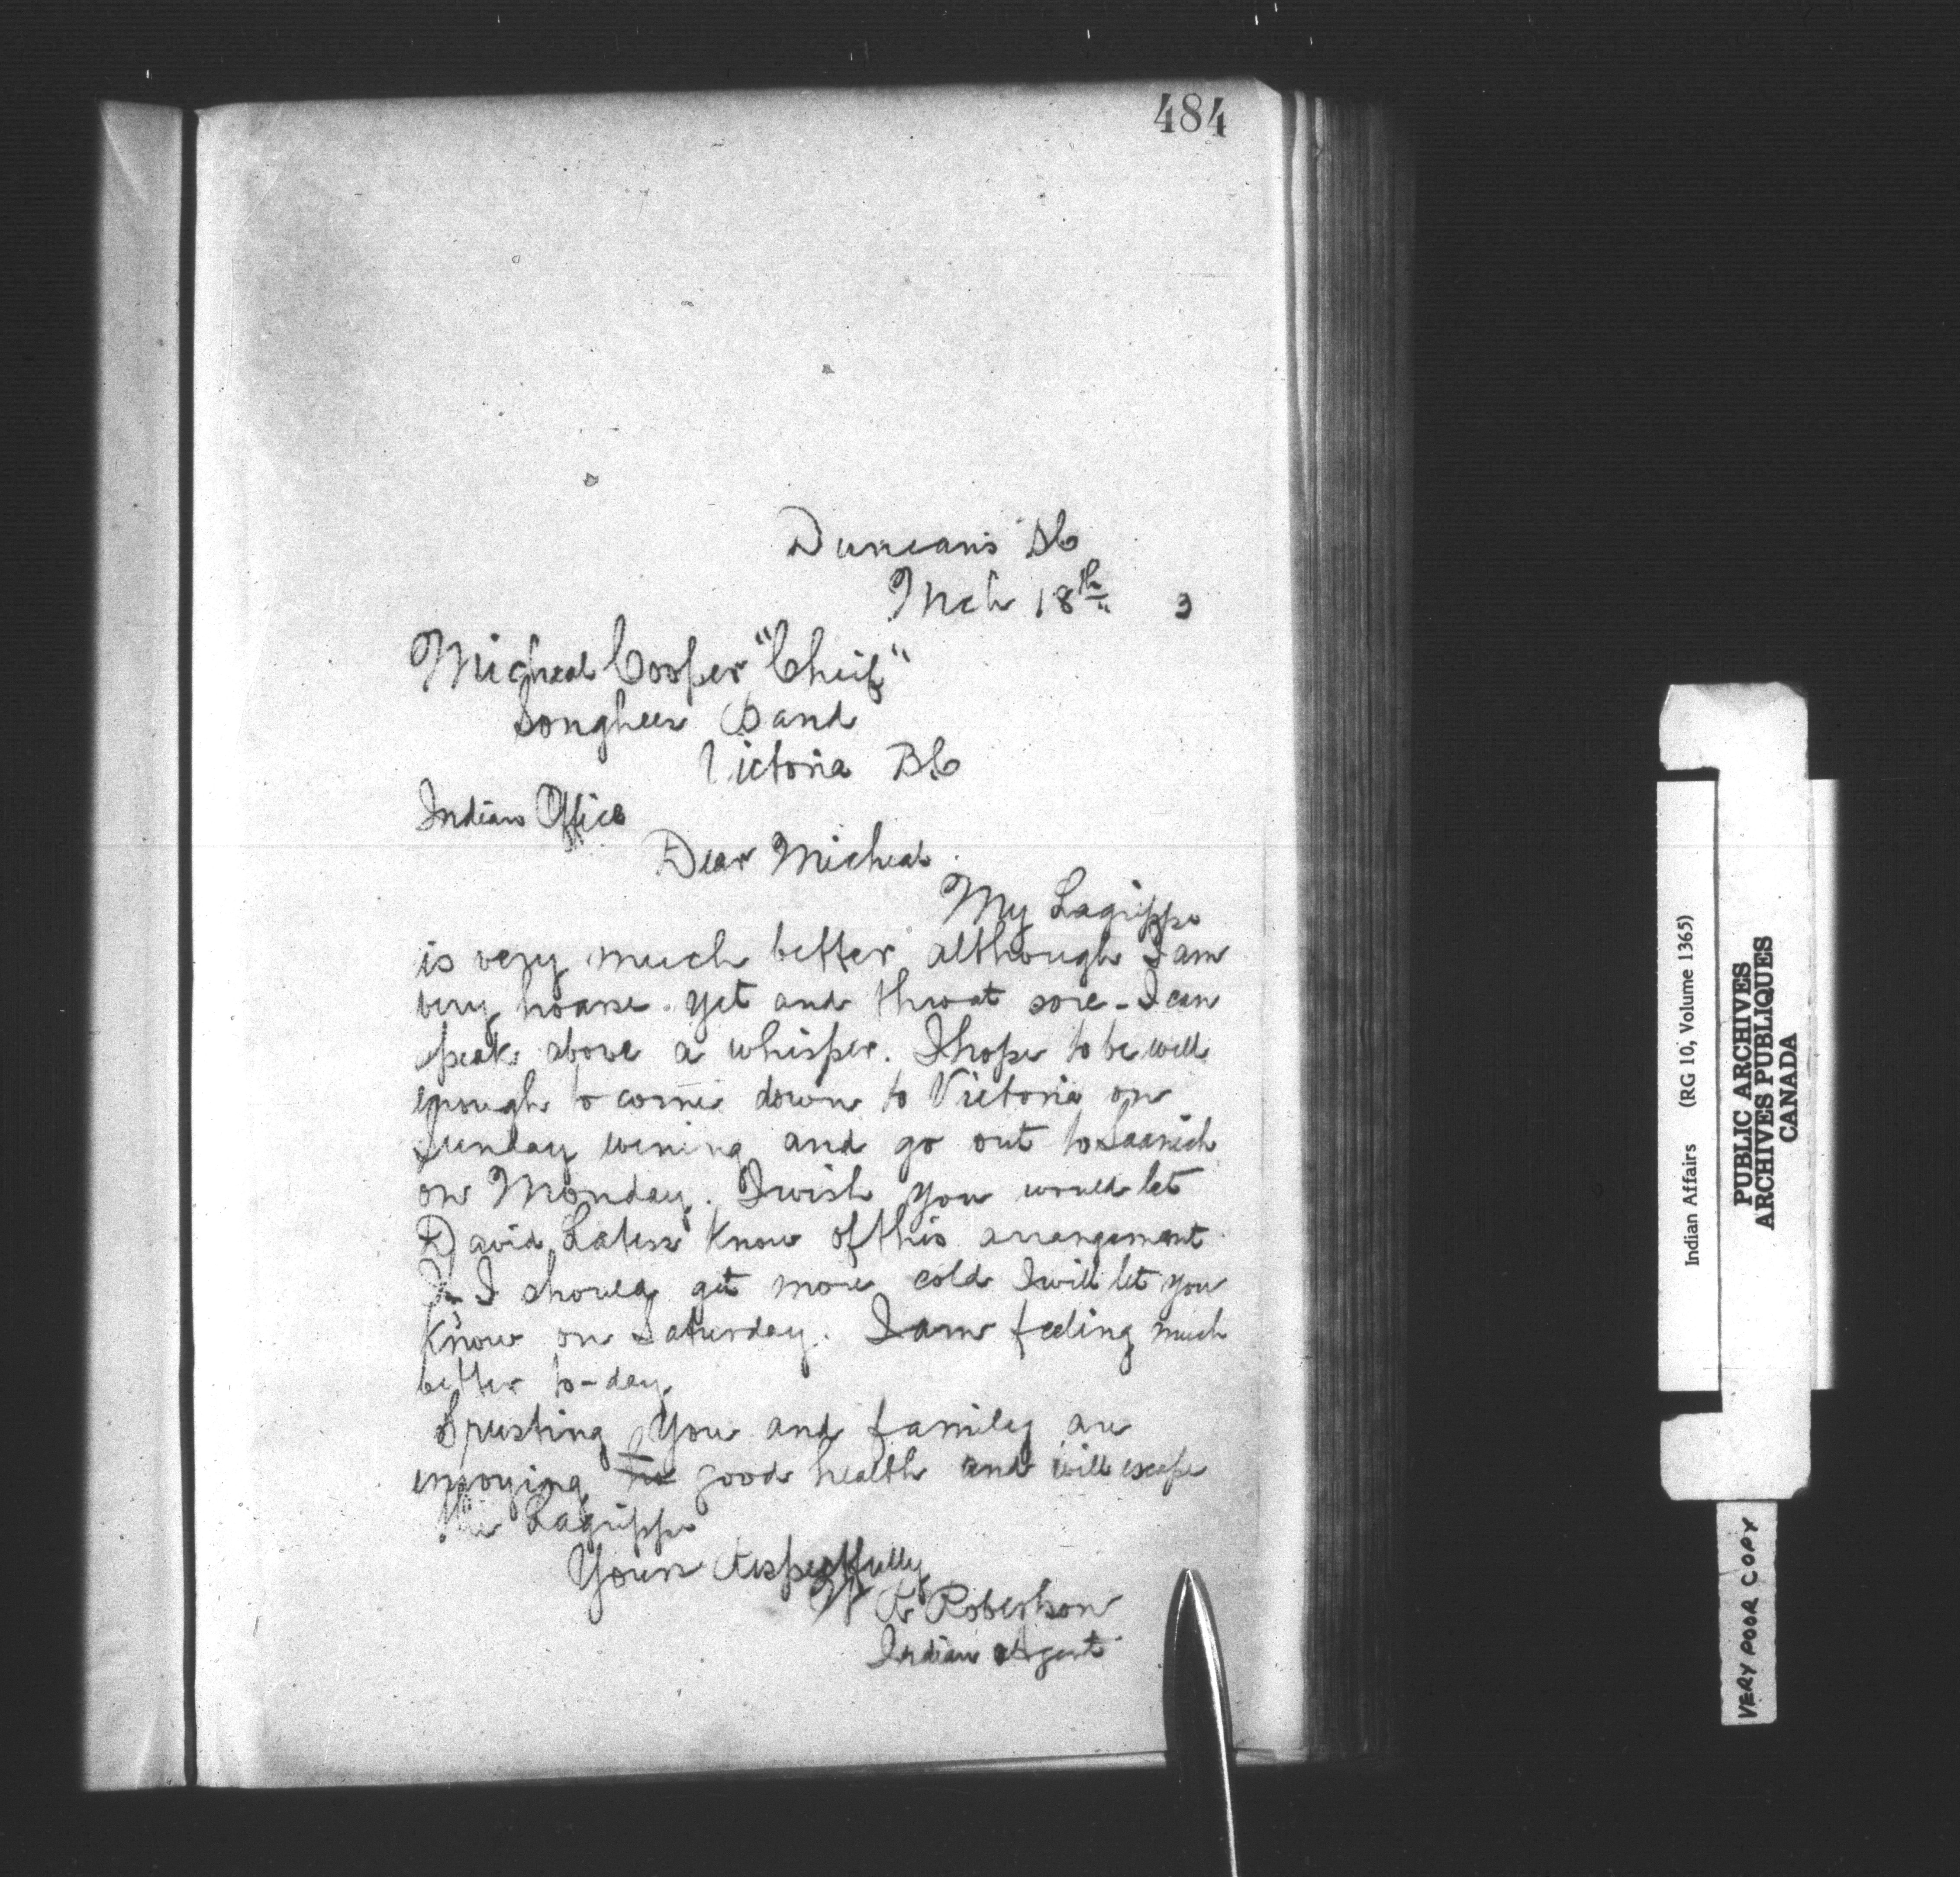 484
Duncans BC
Mch 18th 3
Micheal Cooper "Cheif"
Songhees Band
Victoria BC
Indian Office
Dear Micheal
My Lagrippe
is very much better although I am
very hoarse yet and throat sore - I can
speak above a whisper. I hope to be well
enough to come down to Victoria on
Sunday evening and go out to Saanich
on Monday. I wish you would let
David Latess know of this arrangement
If I should get more cold I will let you
know on Saturday. I am feeling much
better to-day
Trusting you and family are
enjoying good health and will escape
the Lagrippe
Yours Respectfully
W R Robertson
Indian Agent
Indian Affairs (RG 10, Volume 1365)
PUBLIC ARCHIVES
ARCHIVES PUBLIQUES
CANADA
VERY POOR COPY